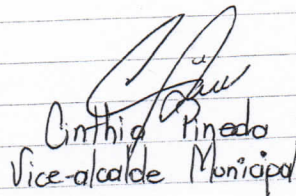 Cinthia Pineda
Vice-alcalde Municipal